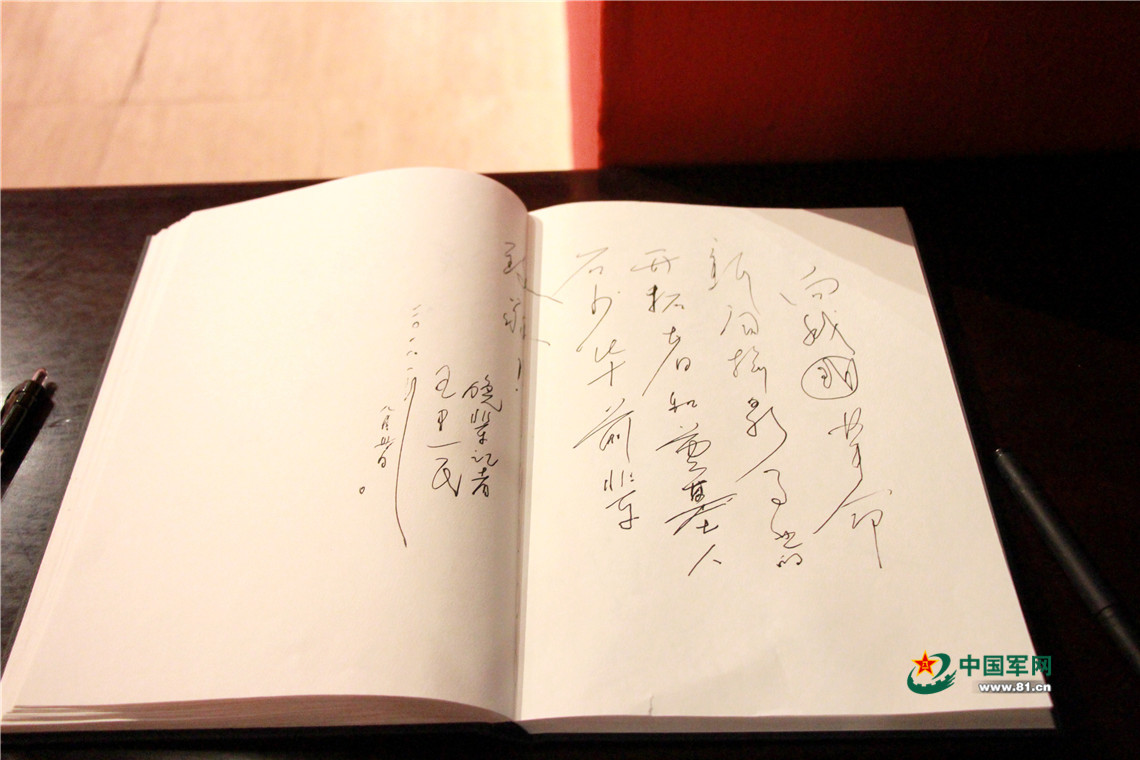 向我國革命
新闻摄影事业的
开拓者和奠基人
石少华前辈
致敬！
晚辈记者
王里
八月廿日。
中国军网
www.81.cn